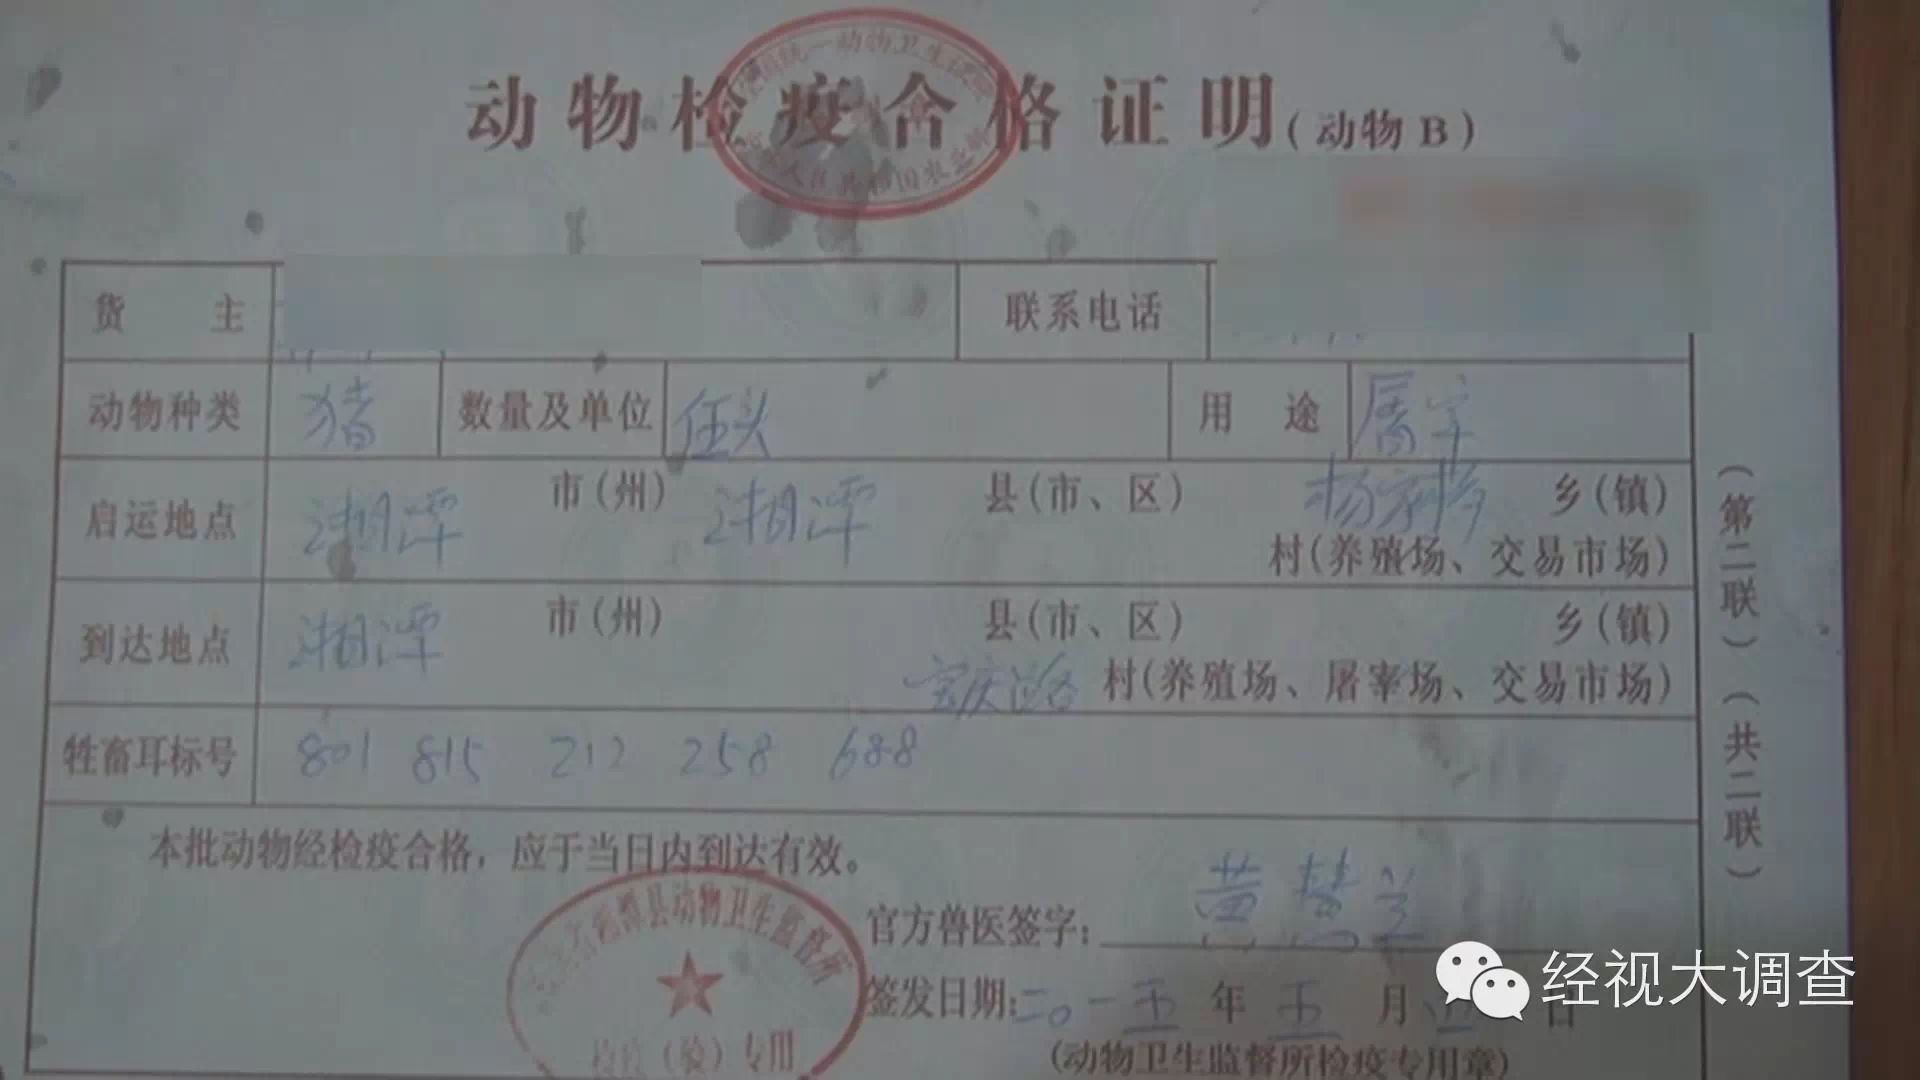 动物检疫合格证明(动物B)
货 主 联系电话
动物种类 猪 数量及单位 伍头 用 途 屠宰
启运地点 湘潭 市(州) 湘潭 县(市、区) 乡(镇)
村(养殖场、交易市场)
到达地点 湘潭 市(州) 县(市、区) 乡(镇)
村(养殖场、屠宰场、交易市场)
牲畜耳标号 801 815 212 258 688
本批动物经检疫合格，应于当日内到达有效。
官方兽医签字:
签发日期:二〇一五 年 五 月 日
(动物卫生监督所检疫专用章)
湘潭县动物卫生监督所
检疫(验)专用
(第二联)(共二联)
经视大调查